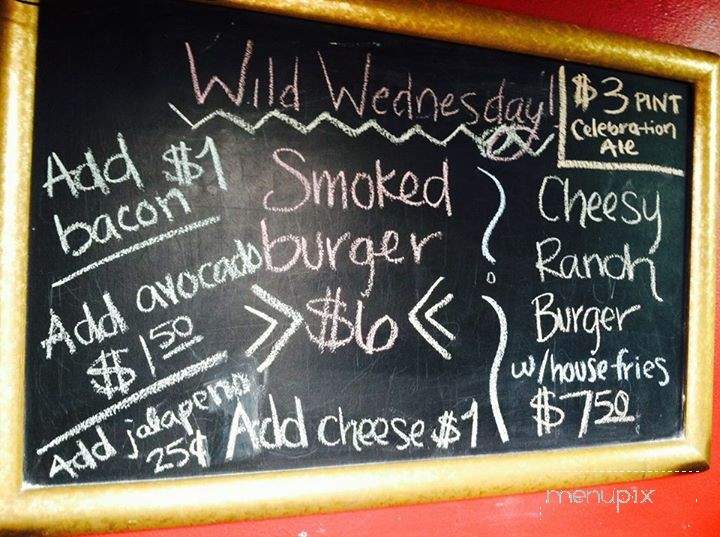 Wild Wednesday!
$3 PINT
Celebration
Ale
Add $1
bacon
Add avocado
$1.50
Add jalapeno
25¢
Smoked
burger
>> $6 <<
Add cheese $1
Cheesy
Ranch
Burger
w/house fries
$7.50
menupix